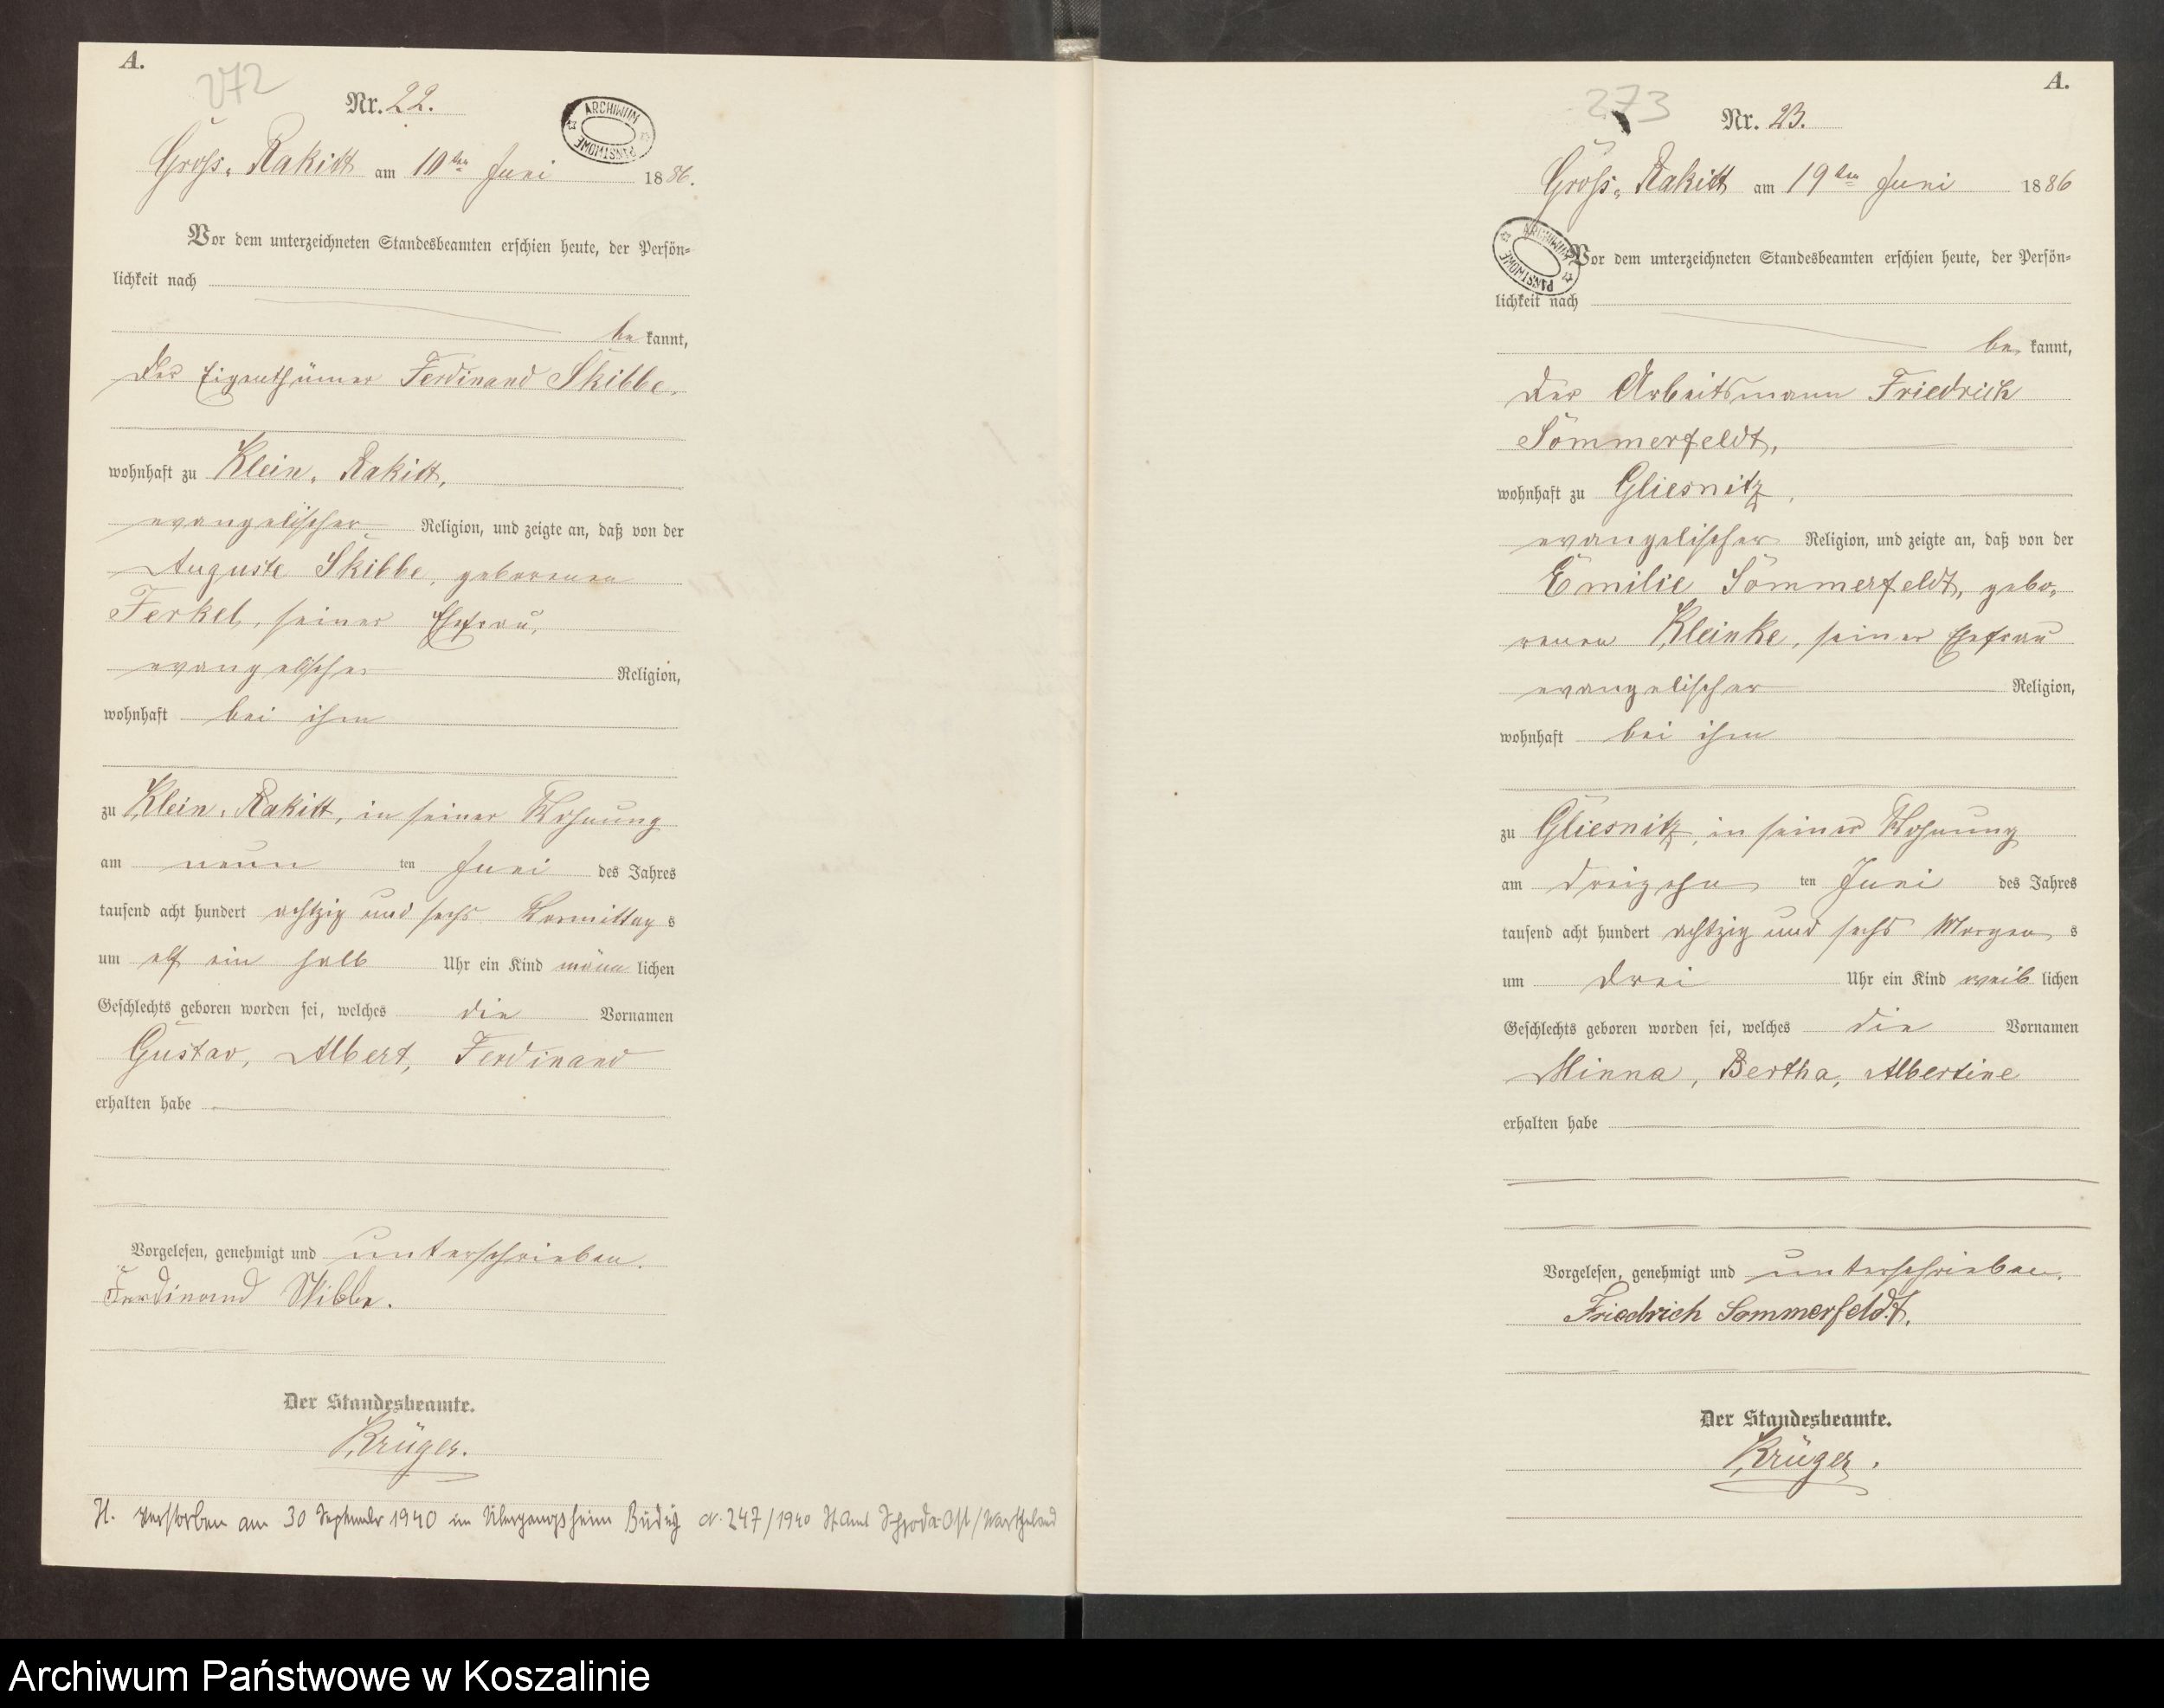 A.
272
Nr. 22.
ARCHIWUM PAŃSTWOWE
Gross-Rakitt am 10ten Juni 1886.
Vor dem unterzeichneten Standesbeamten erschien heute, der Persön-
lichkeit nach
be kannt,
der Eigenthümer Ferdinand Skibbe,
wohnhaft zu Klein-Rakitt,
evangelischer Religion, und zeigte an, daß von der
Auguste Skibbe, geborenen
Ferkel, seiner Ehefrau,
evangelischer Religion,
wohnhaft bei ihm
zu Klein-Rakitt, in seiner Wohnung
am neun ten Juni des Jahres
tausend acht hundert achtzig und sechs Vormittag s
um elf ein halb Uhr ein Kind männ lichen
Geschlechts geboren worden sei, welches die Vornamen
Gustav, Albert, Ferdinand
erhalten habe
Vorgelesen, genehmigt und unterschrieben.
Ferdinand Skibbe.
Der Standesbeamte.
Krüger.
verstorben am 30 September 1940 im Übergangsheim N. 247/1940 St.Amt Schroda-Ost/Wartheland
A.
273
Nr. 23.
Gross-Rakitt am 19ten Juni 1886
ARCHIWUM PAŃSTWOWE
Vor dem unterzeichneten Standesbeamten erschien heute, der Persön-
lichkeit nach
be kannt,
der Arbeitsmann Friedrich
Sommerfeldt,
wohnhaft zu Gliesnitz,
evangelischer Religion, und zeigte an, daß von der
Emilie Sommerfeldt, gebo-
renen Kleinke, seiner Ehefrau
evangelischer Religion,
wohnhaft bei ihm
zu Gliesnitz, in seiner Wohnung
am dreizehn ten Juni des Jahres
tausend acht hundert achtzig und sechs Morgen s
um drei Uhr ein Kind weib lichen
Geschlechts geboren worden sei, welches die Vornamen
Minna, Bertha, Albertine
erhalten habe
Vorgelesen, genehmigt und unterschrieben.
Friedrich Sommerfeldt.
Der Standesbeamte.
Krüger.
Archiwum Państwowe w Koszalinie